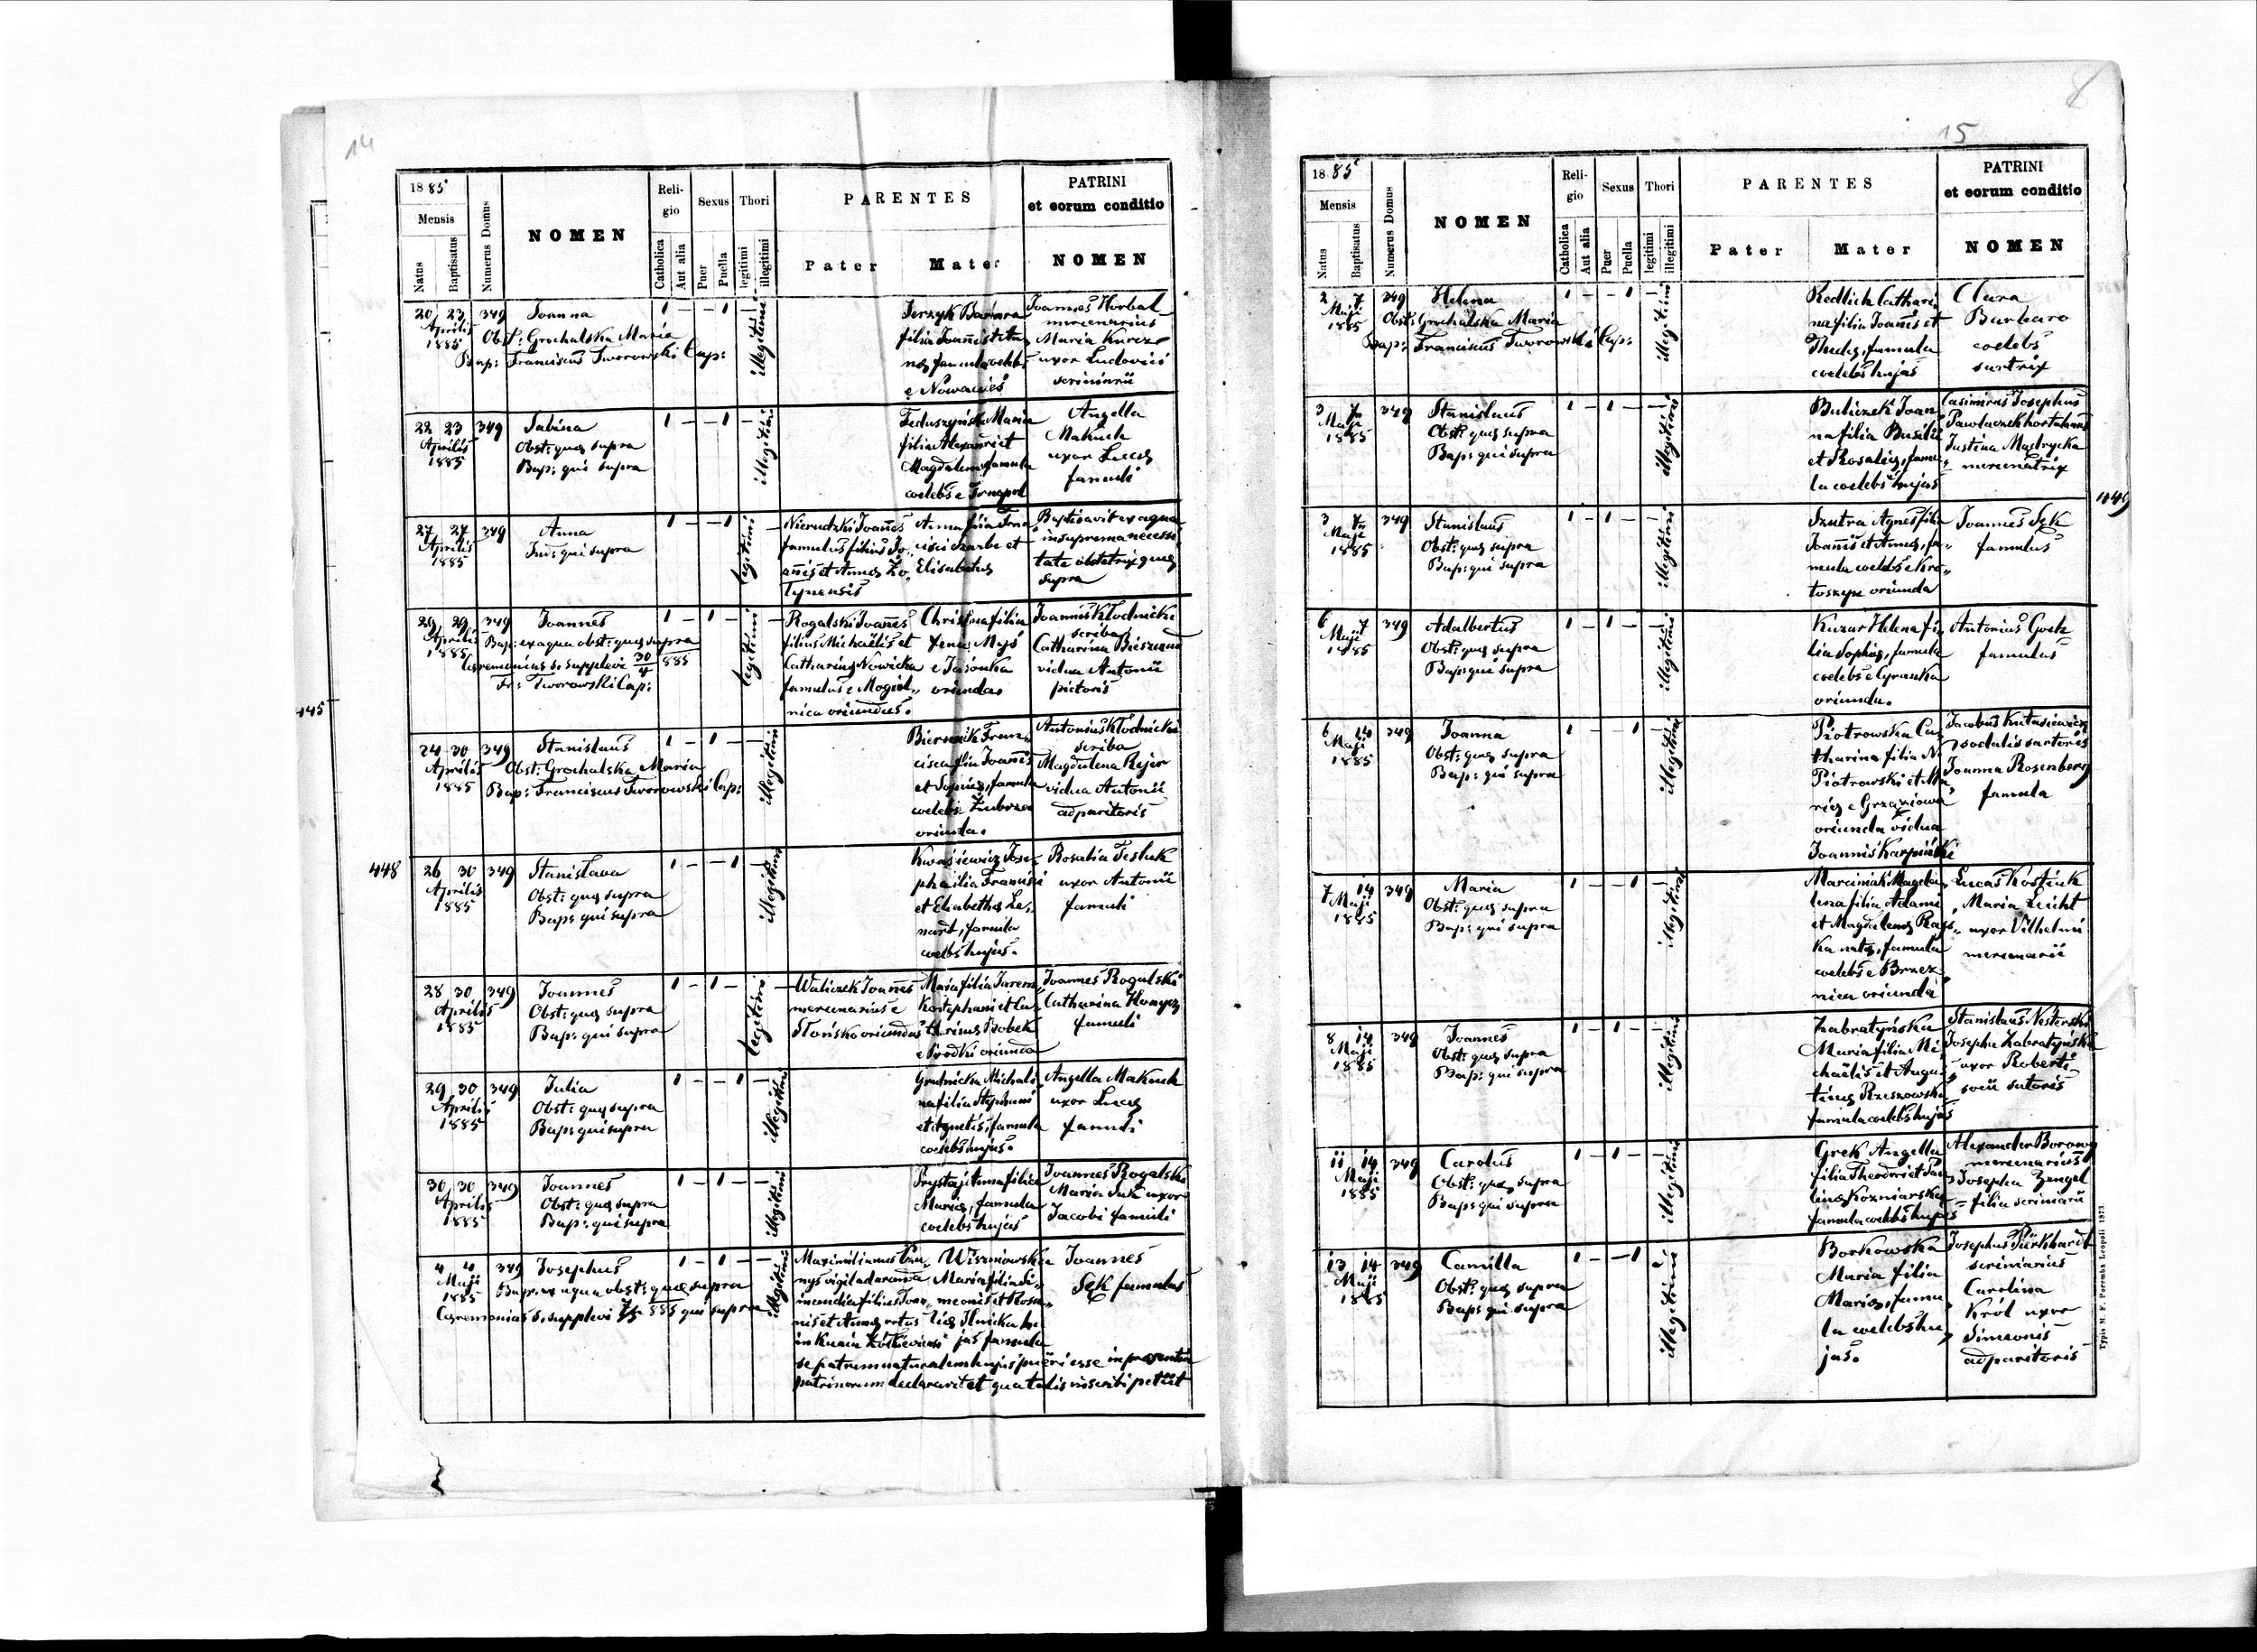 14
18 85
Mensis
Natus
Baptisatus
Numerus Domus
NOMEN
Reli-
gio
Catholica
Aut alia
Sexus
Puer
Puella
Thori
legitimi
illegitimi
PARENTES
Pater
Mater
PATRINI
et eorum conditio
NOMEN
20 23 349 Joanna 1 — — 1 —
Aprilis
1885
Obst: Grochalska Maria
Bap: Franciscus Tworowski Cap:
illegitimi
Jerzyk Barbara
filia Joannis et An
nae famula coelebs
e Nowawieś
Joannes Horbal
mercenarius
Maria Kurcze
uxor Ludovici
scriniarii
22 23 349 Sabina 1 — — 1 —
Aprilis
1885
Obst: quae supra
Bap: qui supra
illegitimi
Maria
filia Alexandri et
Magdalenae famula
coelebs e Tarnopol
Angella
Makuch
uxor Lucae
famuli
27 27 349 Anna 1 — — 1 —
Aprilis
1885
qui supra
legitimi
Joannes
famulus filius Jo„
annis et Annae
Anna filia Fran
cisci et
Elisabethae
Baptisavit ex aqua
in suprema necessi
tate obstetrix quae
supra
29 29 349 Joannes 1 — 1 — —
Aprilis
1885
Bap: ex aqua obst: quae supra
Caeremonias S. supplevi 30/4 885
Fr: Tworowski Cap:
legitimi
Rogalski Joannes
filius Michaëlis et
Catharinae Nowicka
famulus e Mogiel„
nica oriundus.
Christina filia
e Jasionka
oriunda.
Joannes Kłodnicki
scriba
Catharina
vidua Antonii
pictoris
445
24 30 349 Stanislaus 1 — 1 — —
Aprilis
1885
Obst: Grochalska Maria
Bap: Franciscus Tworowski Cap:
illegitimi
Biernik Fran„
cisca filia Joannis
et Sophiae, famula
coelebs e
oriunda.
Antonius Kłodnicki
scriba
Magdalena Rejer
vidua Antonii
adparitoris
448
26 30 349 Stanisława 1 — — 1 —
Aprilis
1885
Obst: quae supra
Bap: qui supra
illegitimi
Kwasiewicz Jose„
pha filia Francisci
et Elisabethae Le„
nart, famula
coelebs hujas.
Rosalia Tesluk
uxor Antonii
famuli
28 30 349 Joannes 1 — 1 — —
Aprilis
1885
Obst: quae supra
Bap: qui supra
legitimi
Waliczek Joannes
mercenarius e
Słońsko oriundus
Maria filia
Stephani et Ca„
tharinae Bobek
e Brodki oriunda
Joannes Rogalski
Catharina
famuli
29 30 349 Julia 1 — — 1 —
Aprilis
1885
Obst: quae supra
Bap: qui supra
illegitimi
Grudnicka Michali„
na filia Stephani
et Agnetis, famula
coelebs hujas.
Angella Makuch
uxor Lucae
famuli
30 30 349 Joannes 1 — 1 — —
Aprilis
1885
Obst: quae supra
Bap: qui supra
illegitimi
Prystaj Anna filia
Mariae, famula
coelebs hujas
Joannes Rogalski
Maria Suk uxor
Jacobi famuli
4 4 349 Josephus 1 — 1 — —
Maji
1885
Bap: ex aqua obst: quae supra
Caeremonias S. supplevi 885 qui supra
illegitimi
Maximilianus
vigil ad arcenda
incendia filius Joan„
nis et Annae natus
in
Wiszniowska
Maria filia Si„
meonis et Rosa„
liae Ilnicka hu
jas famula
se patrem naturalem hujus pueri esse in praesentia
patrinorum declaravit et qua talis inscribi petiit
Joannes
Sęk famulus
8
15
18 85
Mensis
Natus
Baptisatus
Numerus Domus
NOMEN
Reli-
gio
Catholica
Aut alia
Sexus
Puer
Puella
Thori
legitimi
illegitimi
PARENTES
Pater
Mater
PATRINI
et eorum conditio
NOMEN
2 7 349 Helena 1 — — 1 —
Maji
1885
Obst: Grochalska Maria
Bap: Franciscus Tworowski Cap:
illegitimi
Redlich Cathari„
na filia Joannis et
Theclae, famula
coelebs hujas
Clara
Barbaro
coelebs
sartrix
3 7 349 Stanislaus 1 — 1 — —
Maji
1885
Obst: quae supra
Bap: qui supra
illegitimi
Buliczek Joan
na filia Basilii
et Rosaliae, famu„
la coelebs hujas
Casimirus Josephus
Pawlaczek hortulanus
Justina Mądrycka
mercenatrix
449
3 7 349 Stanislaus 1 — 1 — —
Maji
1885
Obst: quae supra
Bap: qui supra
illegitimi
Szutra Agnes filia
Joannis et Annae, fa„
mula coelebs e Kro„
toszyn oriunda
Joannes Sęk
famulus
6 7 349 Adalbertus 1 — 1 — —
Maji
1885
Obst: quae supra
Bap: qui supra
illegitimi
Kuzar Helena fi„
lia Sophiae, famula
coelebs e Cyranka
oriunda.
Antonius Gock
famulus
6 14 349 Joanna 1 — — 1 —
Maji
1885
Obst: quae supra
Bap: qui supra
illegitimi
Piotrowska Ca„
tharina filia N.
Piotrowski et Ma„
riae e
oriunda vidua
Joannis Karpiński
Jacobus Kutasiewicz
sodalis sartoris
Joanna Rosenberg
famula
7 14 349 Maria 1 — — 1 —
Maji
1885
Obst: quae supra
Bap: qui supra
illegitimi
Marciniak Magda„
lena filia Adami
et Magdalenae
ka natae, famula
coelebs e Brzez
nica oriunda
Lucas Kostiuk
Maria Leicht
uxor Vilhelmi
mercenarii
8 14 349 Joannes 1 — 1 — —
Maji
1885
Obst: quae supra
Bap: qui supra
illegitimi
Zabratyńska
Maria filia Mi„
chaëlis et Augus
tinae Rzeszowska
famula coelebs hujas
Stanislaus Nesterski
Josepha Zabratyńska
uxor Roberti
socii sutoris
11 14 349 Carolus 1 — 1 — —
Maji
1885
Obst: quae supra
Bap: qui supra
illegitimi
Grek Angella
filia Theodori et Pau„
linae Kozniarska
famula coelebs hujas
Alexander Borowy
mercenarius
Josepha Zengel
filia scriniarii
13 14 349 Camilla 1 — — 1
Maji
1885
Obst: quae supra
Bap: qui supra
illegitimi
Borkowska
Maria filia
Mariae, famu„
la coelebs hu„
jas.
Josephus
scriniarius
Carolina
Król uxor
Simeonis
adparitoris
Typis M. F. Poremba Leopoli 1873.